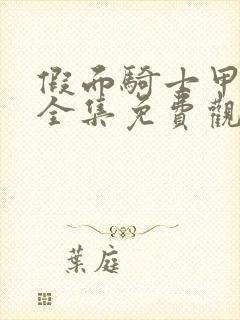 假面騎士甲
全集免費觀
葉庭